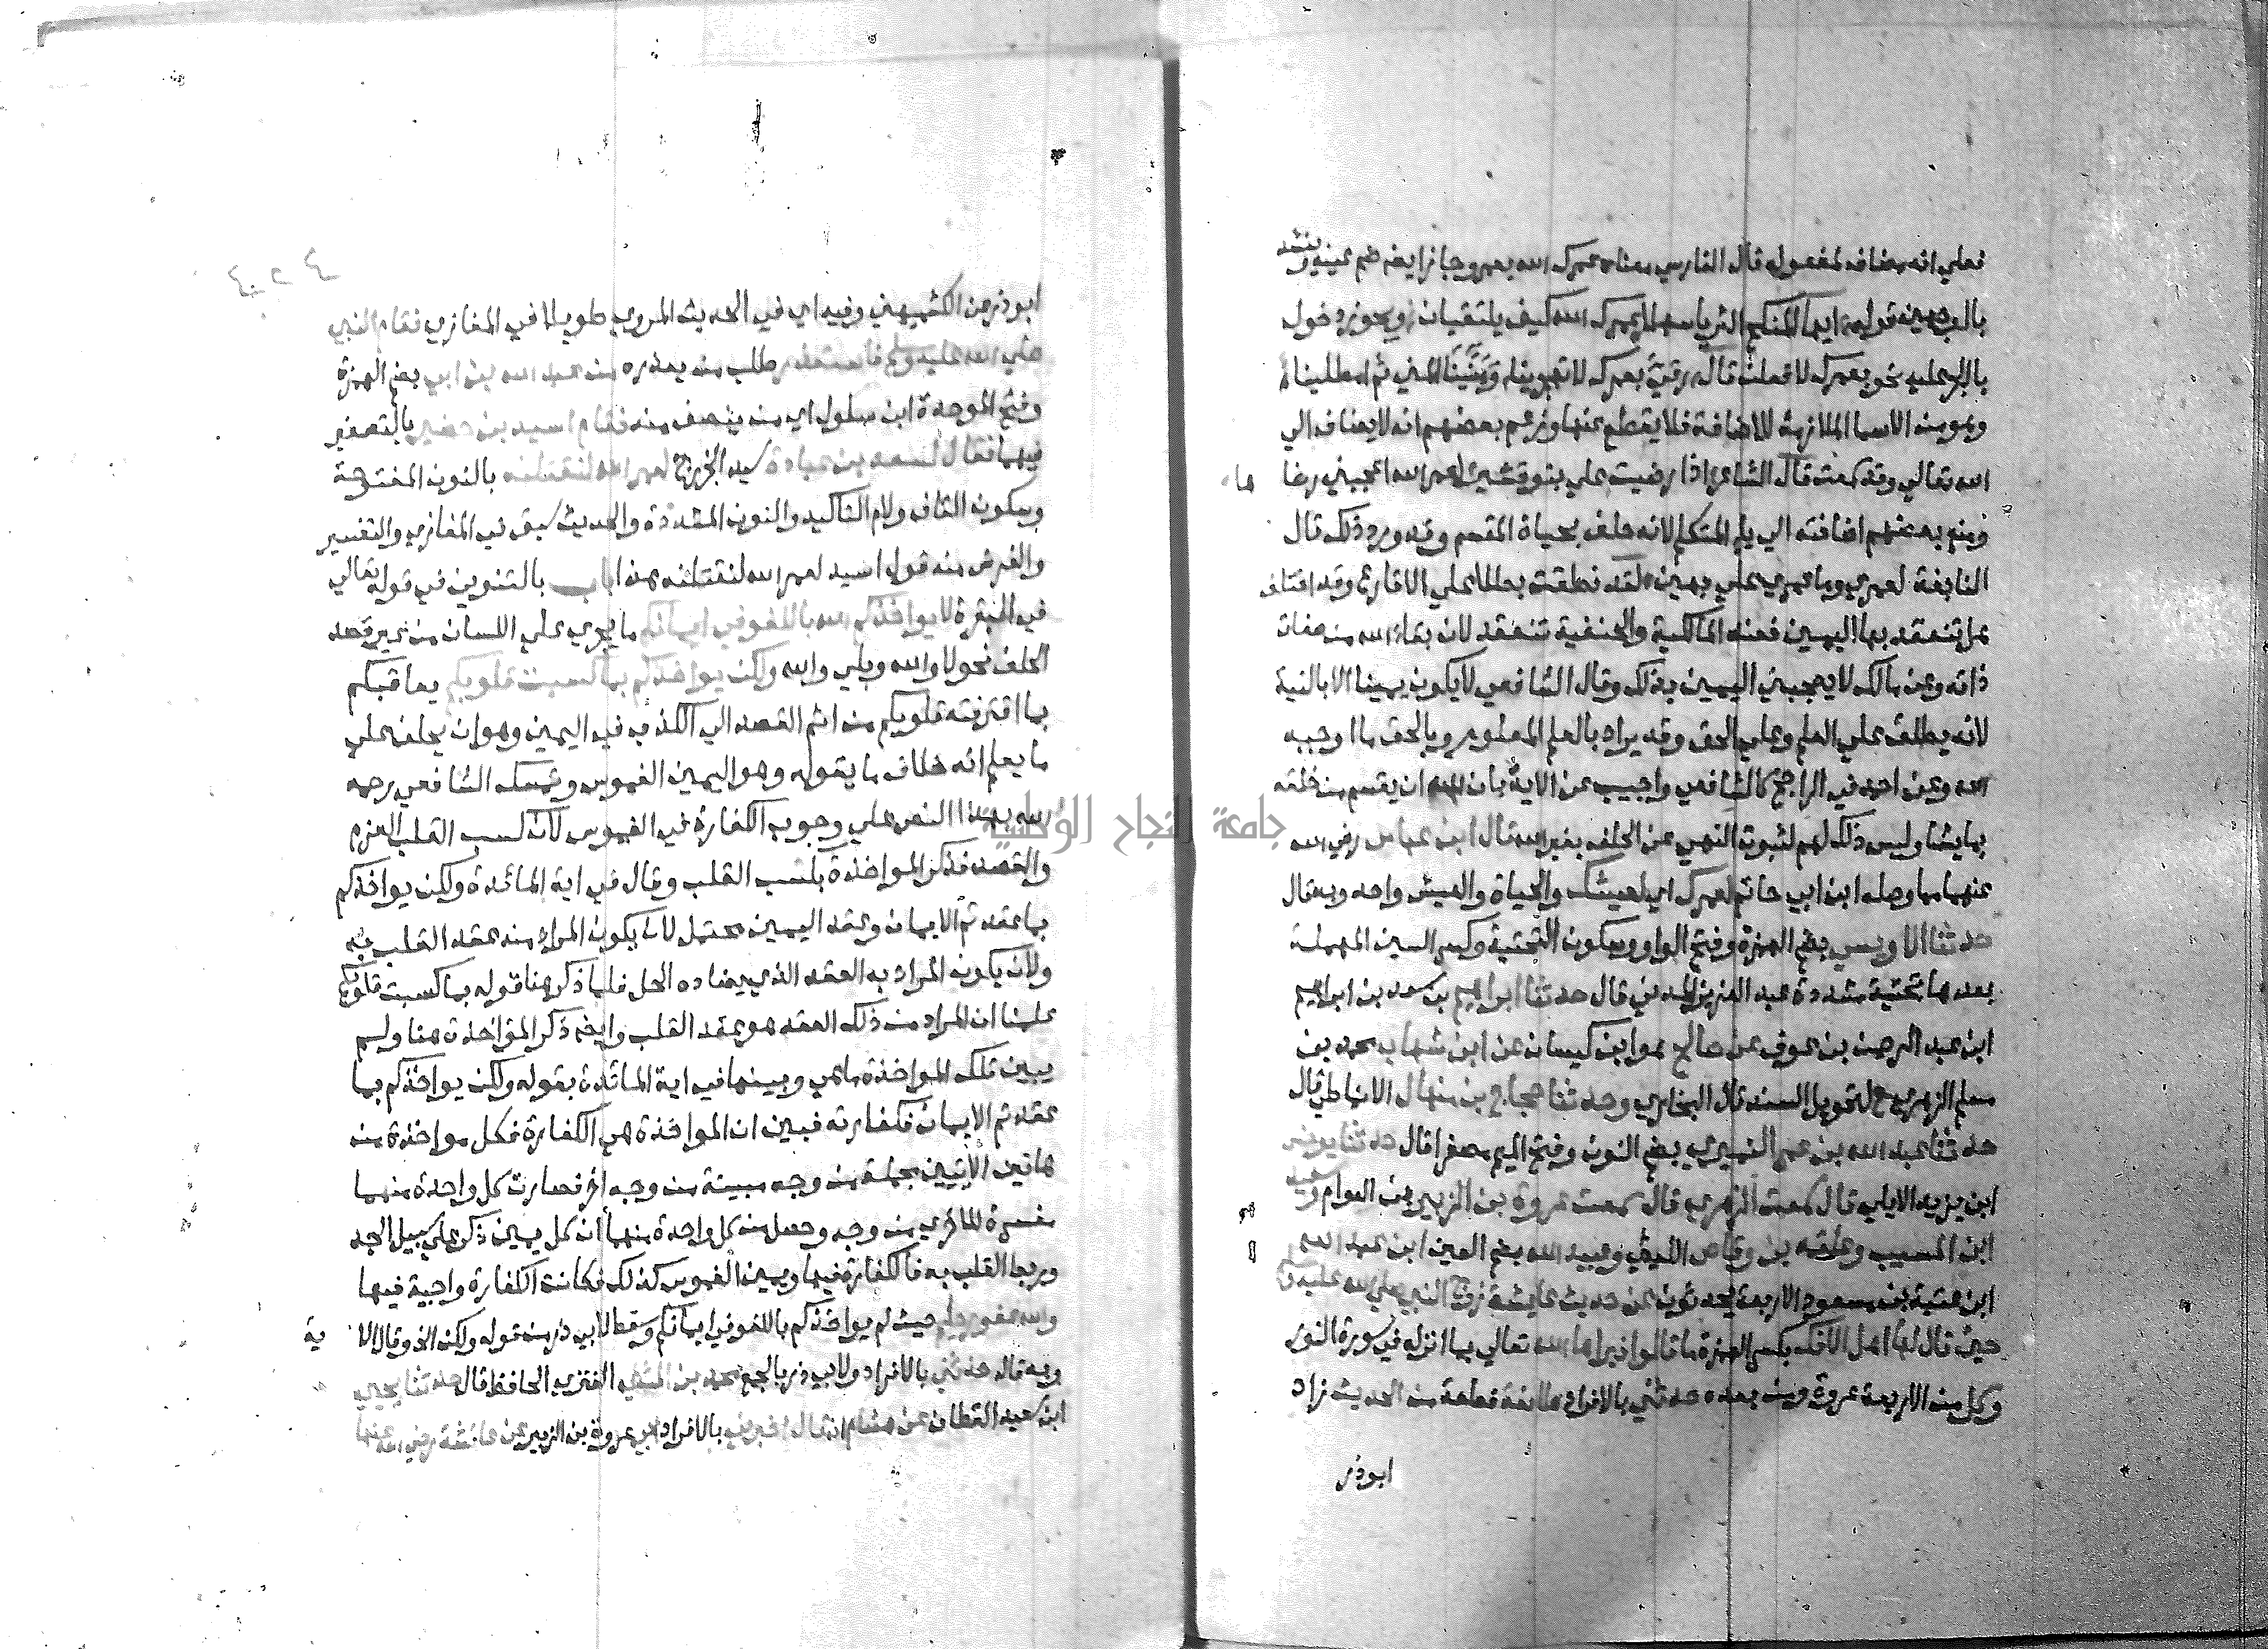 فعلي انه مضاف لمفعوله قال الفارسي معناه عمرك الله بعمر وجايز ايضا ضم عينه وينشد
بالوجهين قوله ايها المنكح الثريا سهيلا عمرك الله كيف يلتقيان ويجوز دخول
بالجر عليه نحو بعمرك لا فعلت قال رقي بعمرك لا تهجرينا ومنينا المني ثم امطلينا
وهو من الاسما الملازمة للاضافة فلا يقطع عنها وزعم بعضهم انه لا يضاف الي
الله تعالي وقد سمعت قال الشاعر اذا رضيت علي بنو قشير لعمر الله اعجبني رضا
ها
ومنع بعضهم اضافته الي يا المتكلم لانه حلف بحياة المقسم وقد ورد ذلك قال
النابغة لعمري وما عمري علي بهين لقد نطقت بطلا علي الاقارع وقد اختلف
هل تنعقد بها اليمين فعند المالكية والحنفية تنعقد لان بقا الله من صفات
ذاته وعن مالك لا يعجبني اليمين بذلك وقال الشافعي لا يكون يمينا الا بالنية
لانه يطلق علي العلم وعلي الحق وقد يراد بالعلم المعلوم وبالحق ما اوجبه
الله وعن احمد في الراجح كالشافعي واجيب عن الاية بان لله ان يقسم من خلقه
بما يشا وليس ذلك لهم لثبوت النهي عن الحلف بغير الله قال ابن عباس رضي الله
عنهما مما وصله ابن ابي حاتم لعمرك اي لعيشك والحياة والعيش واحد وبه قال
حدثنا الاويسي بضم الهمزة وفتح الواو وسكون التحتية وكسر السين المهملة
بعدها تحتية مشددة عبد العزيز المدني قال حدثنا ابراهيم بن سعد بن ابراهيم
ابن عبد الرحمن بن عوف عن صالح هو ابن كيسان عن ابن شهاب محمد بن
مسلم الزهري ح لتحويل السند قال البخاري وحدثنا حجاج بن منهال الانماطي قال
حدثنا عبد الله بن عمر النميري بضم النون وفتح الميم مصغرا قال حدثنا يونس
ابن يزيد الايلي قال سمعت الزهري قال سمعت عروة بن الزبير بن العوام وسعيد
ابن المسيب وعلقمة بن وقاص الليثي وعبيد الله بضم العين ابن عبد الله
ابن عتبة بن مسعود الاربعة يحدثون عن حديث عايشة زوج النبي صلي الله عليه وسلم
حين قال لها اهل الافك بكسر الهمزة ما قالوا فبراها الله تعالي بما انزله في سورة النور
وكل من الاربعة عروة ومن بعده حدثني بالافراد طائفة قطعة من الحديث زاد
ابوذر
ابوذر عن الكشميهني وفيه اي في الحديث المروي طويلا في المغازي فقام النبي
صلي الله عليه وسلم فاستعذر طلب من يعذره من عبد الله بن ابي بضم الهمزة
وفتح الموحدة ابن سلول اي من ينصف منه فقام اسيد بن حضير بالتصغير
فيهما فقال لسعد بن عبادة سيد الخزرج لعمر الله لنقتلنه بالنون المفتوحة
وسكون القاف ولام التاكيد والنون المشددة والحديث سبق في المغازي والتفسير
والغرض منه قول اسيد لعمر الله لنقتلنه هذا باب بالتنوين في قوله تعالي
في البقرة لا يواخذكم الله باللغو في ايمانكم ما يجري علي اللسان من غير قصد
الحلف نحو لا والله وبلي والله ولكن يواخذكم بما كسبت قلوبكم يعاقبكم
بما اقترفته قلوبكم من اثم القصد الي الكذب في اليمين وهو ان يحلف علي
ما يعلم انه خلاف ما يقوله وهو اليمين الغموس وتمسك الشافعي رحمه
الله بهذا النص علي وجوب الكفارة في الغموس لان كسب القلب العزم
والقصد فذكر المواخذة بكسب القلب وقال في اية المائدة ولكن يواخذكم
بما عقدتم الايمان وعقد اليمين محتمل لان يكون المراد منه عقد القلب به
ولان يكون المراد به العقد الذي يضاده الحل فلما ذكر هنا قوله بما كسبت قلوبكم
علمنا ان المراد من ذلك العقد هو عقد القلب وايضا ذكر المواخذة هنا ولم
يبين تلك المواخذة ما هي وبينها في اية المائدة بقوله ولكن يواخذكم بما
عقدتم الايمان فكفارته فبين ان المواخذة هي الكفارة فكل مواخذة من
هاتين الايتين مجملة من وجه مبينة من وجه اخر فصارت كل واحدة منهما
مفسرة للاخري من وجه وحصل من كل واحدة منهما ان كل يمين ذكر علي سبيل الجد
وربط القلب به فالكفارة فيها ويمين الغموس كذلك فكانت الكفارة واجبة فيها
والله غفور حليم حيث لم يواخذكم باللغو في ايمانكم وسقط لابي ذر من قوله ولكن الخ وقال الا ية
وبه قال حدثني بالافراد ولابي ذر بالجمع محمد بن المثني العنزي الحافظ قال حدثنا يحيي
ابن سعيد القطان عن هشام انه قال اخبرني بالافراد ابي عروة بن الزبير عن عائشة رضي الله عنها
جامعة النجاح الوطنية